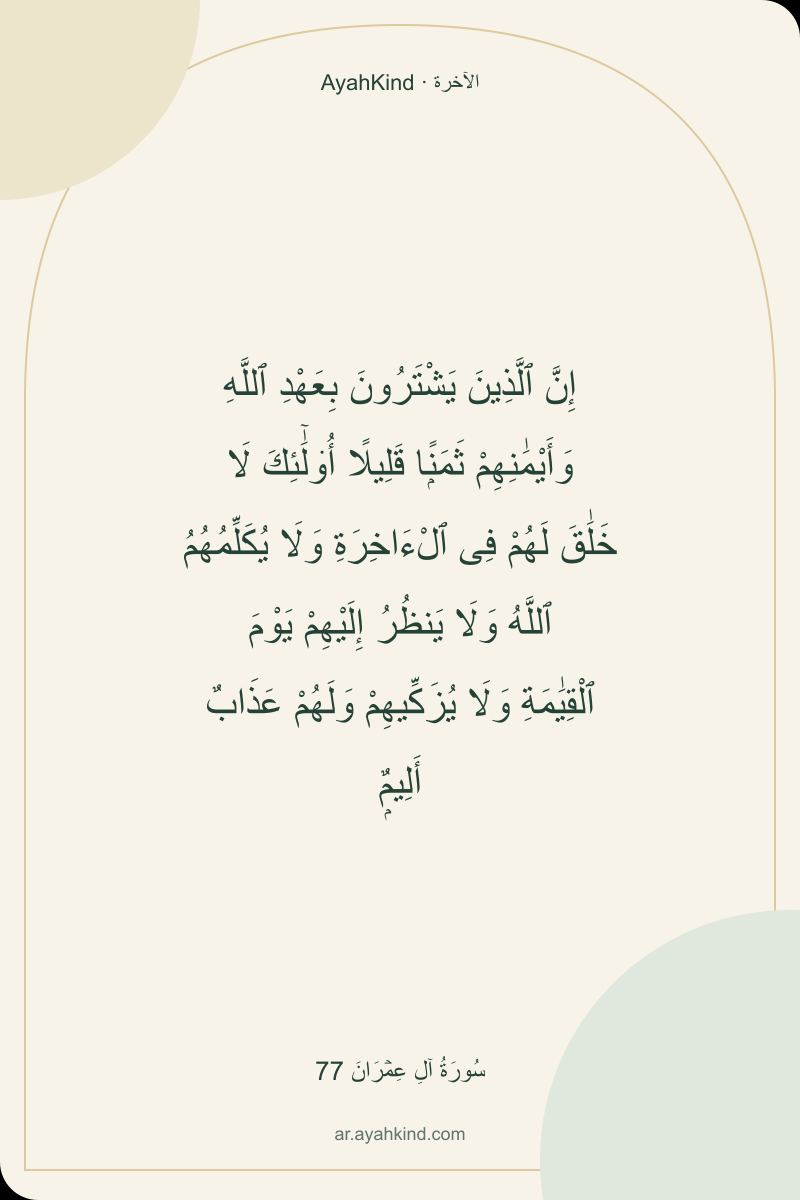 AyahKind · الآخرة
إِنَّ ٱلَّذِينَ يَشْتَرُونَ بِعَهْدِ ٱللَّهِ
وَأَيْمَٰنِهِمْ ثَمَنًۭا قَلِيلًا أُو۟لَٰٓئِكَ لَا
خَلَٰقَ لَهُمْ فِى ٱلْءَاخِرَةِ وَلَا يُكَلِّمُهُمُ
ٱللَّهُ وَلَا يَنظُرُ إِلَيْهِمْ يَوْمَ
ٱلْقِيَٰمَةِ وَلَا يُزَكِّيهِمْ وَلَهُمْ عَذَابٌ
أَلِيمٌۭ
سُورَةُ آلِ عِمۡرَانَ 77
ar.ayahkind.com